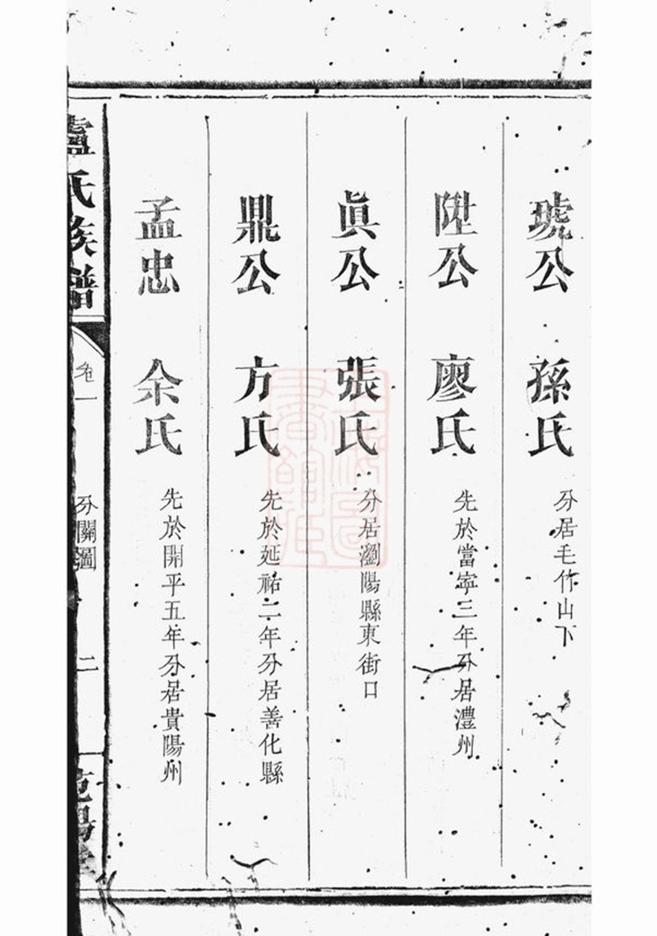 琥公 孫氏 分居毛竹山下
陞公 廖氏 先於當寧三年分居澧州
眞公 張氏 分居瀏陽縣東街口
鼎公 方氏 先於延祐二年分居善化縣
孟忠 余氏 先於開平五年分居貴陽州
盧氏族譜 卷一 分關圖 二 范陽堂